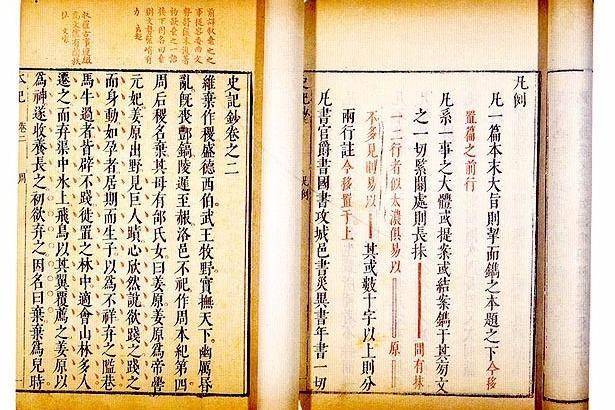 凡例
凡一篇本末大旨則挈而鐫之本題之下今移
置篇之前行
凡系一事之大體或提案或結案鐫于其旁文
之一切緊關處則長抹 間有抹
一二行者似太濃俱易以 原
不多見則易以 其或數十字以上則分
兩行註今移置于上
凡書官爵書國書攻城邑書災異書年書一切
史記鈔 凡例
史記鈔卷之二
維棄作稷盛德西伯武王牧野實撫天下幽厲昏
亂既喪酆鎬陵遲至赧洛邑不祀作周本紀第四
周后稷名棄其母有邰氏女曰姜原姜原為帝嚳
元妃姜原出野見巨人蹟心欣然說欲踐之踐之
而身動如孕者居期而生子以為不祥弃之隘巷
馬牛過者皆辟不踐徙置之林中適會山林多人
遷之而弃渠中氷上飛鳥以其翼覆薦之姜原以
為神遂收養長之初欲弃之因名曰棄棄為兒時
本紀 卷二 周